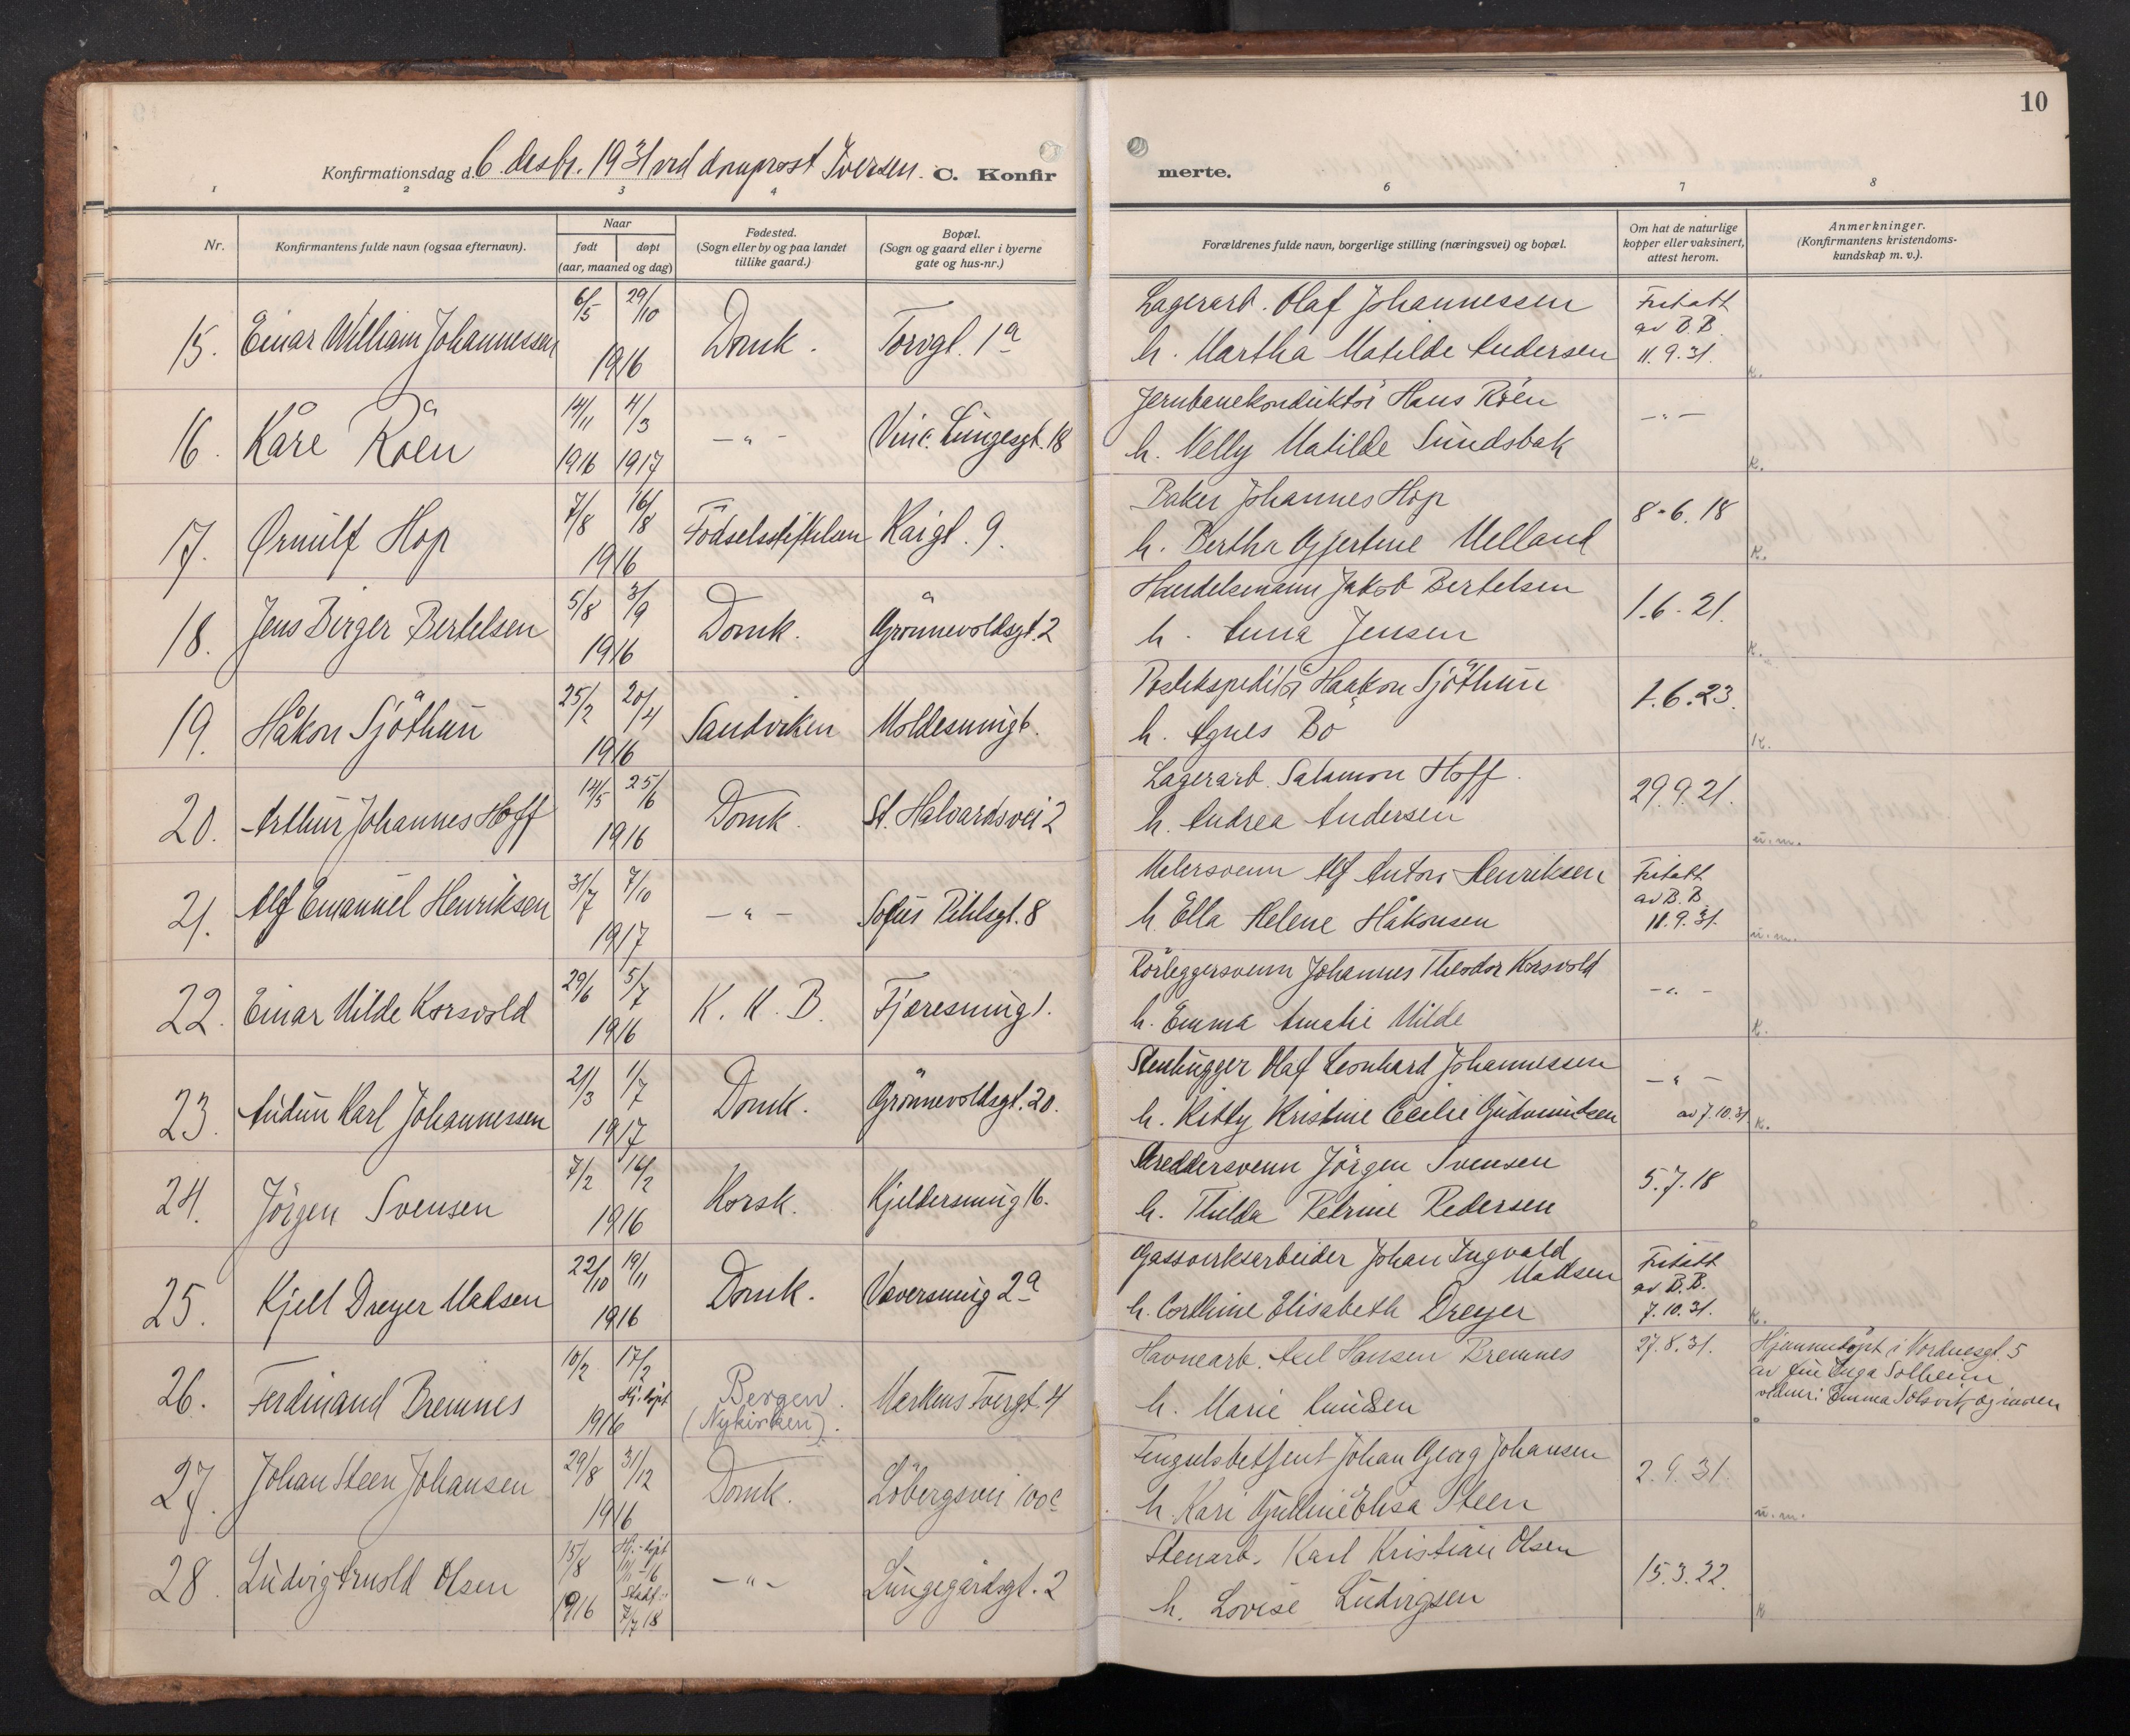 10
Konfirmationsdag d. 6. desbr. 1931 ved domprost Iversen. C. Konfir
merte.
1 2 3 4
6 7 8
Nr.
Konfirmantens fulde navn (ogsaa efternavn).
Naar
født døpt
(aar, maaned og dag)
Fødested.
(Sogn eller by og paa landet
tillike gaard.)
Bopæl.
(Sogn og gaard eller i byerne
gate og hus-nr.)
Forældrenes fulde navn, borgerlige stilling (næringsvei) og bopæl.
Om hat de naturlige
kopper eller vaksinert,
attest herom.
Anmerkninger.
(Konfirmantens kristendoms-
kundskap m. v.).
15. Einar William Johannessen 6/5 29/10 1916 Domk. Torvgt. 1a
Lagerarb. Olaf Johannessen
h. Martha Matilde Andersen
Fritatt
av B.B.
11.9.31.
K.
16. Kåre Röen 14/11 1916 4/3 1917 -"- Vinc. Lungesgt. 18
Jernbanekonduktör Hans Röen
h. Nelly Matilde Sundsbak
-"-
K.
17. Ørnulf Hop 7/8 16/8 1916 Födselsstiftelsen Kaigt. 9.
Baker Johannes Hop
h. Bertha Gjertine Melland
8-6.18
K.
18. Jens Birger Bertelsen 5/8 3/9 1916 Domk. Grönnevoldsgt. 2
Handelsmann Jakob Bertelsen
h. Anna Jensen
1.6.21.
K.
19. Håkon Sjöthun 25/2 20/4 1916 Sandviken Moldesmug 6.
Postekspeditör Haakon Sjöthun
h. Agnes Bö
1.6.23.
K.
20. Arthur Johannes Hoff 14/5 25/6 1916 Domk. St. Halvardsvei 2
Lagerarb. Salamon Hoff.
h. Andrea Andersen
29.9.21.
u.m.
21. Alf Emanuel Henriksen 31/7 7/10 1917 -"- Sofus Pihlsgt. 8
Malersvenn Alf Anton Henriksen
h. Ella Helene Håkonsen
Fritatt
av B.B
11.9.31.
u.m.
22. Einar Milde Korsvold 29/6 5/7 1916 K.K.B. Fjæresmug 1.
Rörleggersvenn Johannes Theodor Korsvold
h. Emma Amalie Milde
-"-
K.
23. Audun Karl Johannessen 21/3 1/7 1917 Domk. Grönnevoldsgt. 20.
Stenhugger Olaf Leonhard Johannessen
h. Kitty Kristine Cecilie Gudmundsen
-"-
av 7.10.31
K.
24. Jörgen Svensen 7/2 16/2 1916 Korsk. Kjeldersmug 16.
Skreddersvenn Jörgen Svensen
h. Thilda Petrine Pedersen
5.7.18
25. Kjell Dreyer Madsen 22/10 19/11 1916 Domk. Væversmug 2a
Gassverksarbeider Johan Ingvald
Madsen
h. Corthine Elisabeth Dreyer
Fritatt
av B.B.
7.10.31.
K.
26. Ferdinand Bremnes 10/2 17/2 Hj. döpt 1916 Bergen.
(Nykirken). Markens Tvergt. 4
Havnearb. Axel Hansen Bremnes
h. Marie Knudsen
27.8.31.
Hjemmedöpt i Vordnesgt. 5
av Inga Solheim
vidner: Emma Solsvik og moren
27. Johan Steen Johansen 29/8 31/12 1916 Domk. Löbergsvei 100c
Fengselsbetjent Johan Georg Johansen
h. Kari Elisa Steen
2.9.31.
u.m.
28 Ludvig Arnold Olsen 15/8 1916 Hj. döpt
Stadf.
7/7 18 -"- Lungegårdsgt. 2
Stenarb. Karl Kristian Olsen
h. Lovise Ludvigsen
15.3.22.
K